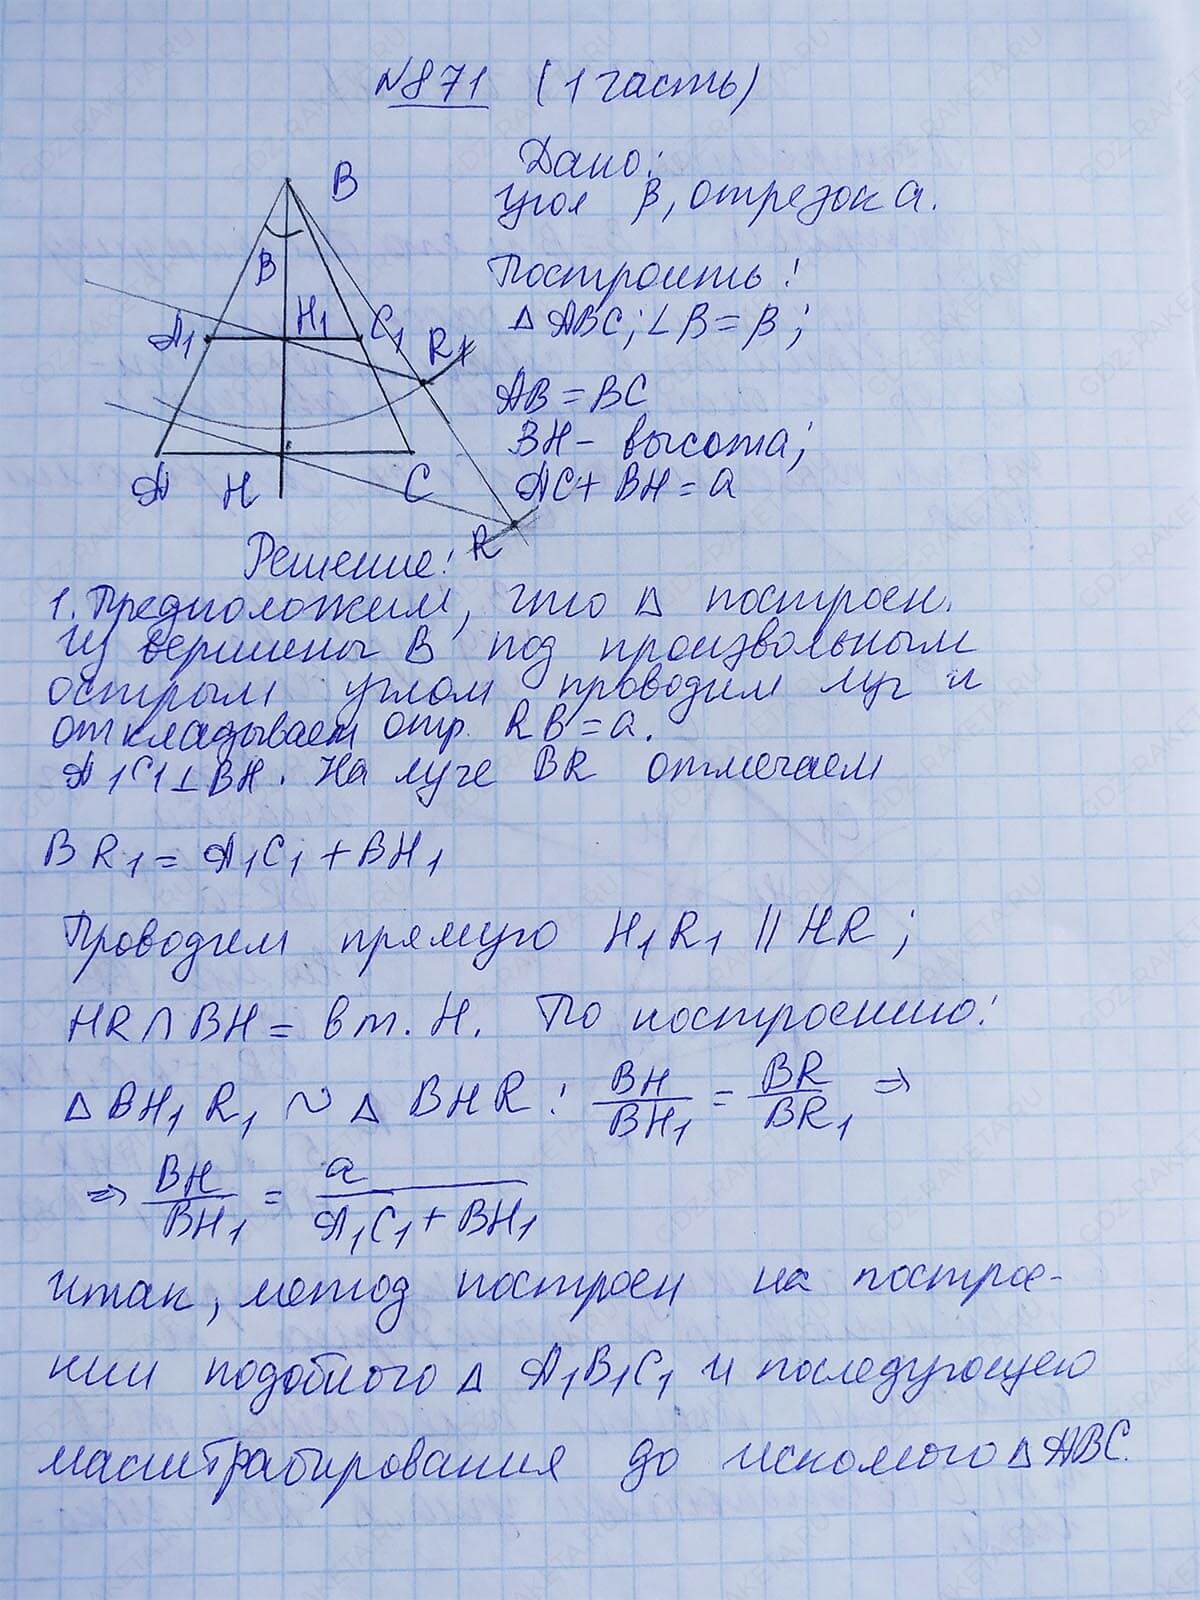 №871 (1 часть)
Дано:
Угол β, отрезок a.
Построить:
△ ABC; ∠B = β;
AB = BC
BH - высота;
AC + BH = a
B
B
H1
A1
C1
R1
A
H
C
R
Решение:
1. Предположим, что △ построен.
Из вершины B под произвольным
острым углом проводим луч и
откладываем отр. RB = a.
A1C1 ⊥ BH. На луче BR отмечаем
BR1 = A1C1 + BH1
Проводим прямую H1R1 || HR;
HR ∩ BH = в т. H. По построению:
△ BH1R1 ~ △ BHR: BH/BH1 = BR/BR1 ⇒
⇒ BH/BH1 = a/(A1C1 + BH1)
Итак, метод построен на построе-
нии подобного △ A1B1C1 и последующего
масштабирования до искомого △ABC.
GDZ-RAKETA.RU